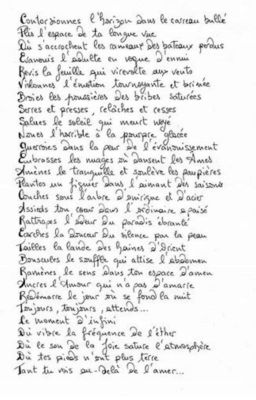 Contorsionnes l'horizon dans le carreau bullé
Plis l'espace de ta longue vue
Où s'accrochent les anneaux des bateaux perdus
Evanouis l'adulte en vogue d'ennui
Revis la feuille qui virevolte aux vents
Violonnes l'émotion tournoyante et brimée
Broies les poussières des bribes saturées
Serres et presses, relâches et cesses
Salues le soleil qui meurt noyé
Noues l'horrible à la pourpre glacée
Guerroies dans la peur de l'évanouissement
Embrasses les nuages où dansent les âmes
Amènes le tranquille et soulève les paupières
Plantes un figuier dans l'aimant des saisons
Couches sous l'arbre d'onirique et d'acier
Assieds ton coeur dans l'ordinaire apaisé
Rattrapes l'odeur du paradis ébranlé
Car­ches la douceur du silence par la peau
Tailles la lande des haines d'Orient
Bouscules le souffle qui attise l'abdomen
Ramènes le sens dans ton espace d'amen
Ancres l'Amour qui n'a pas d'amarre
Redémarre le jour où se fond la nuit
Toujours, toujours, attends...
Le moment d'infini
Où vibre la fréquence de l'éther
Où le son de la Joie sature l'atmosphère
Où tes pieds n'ont plus terre
Tant tu vis au-delà de l'amer...